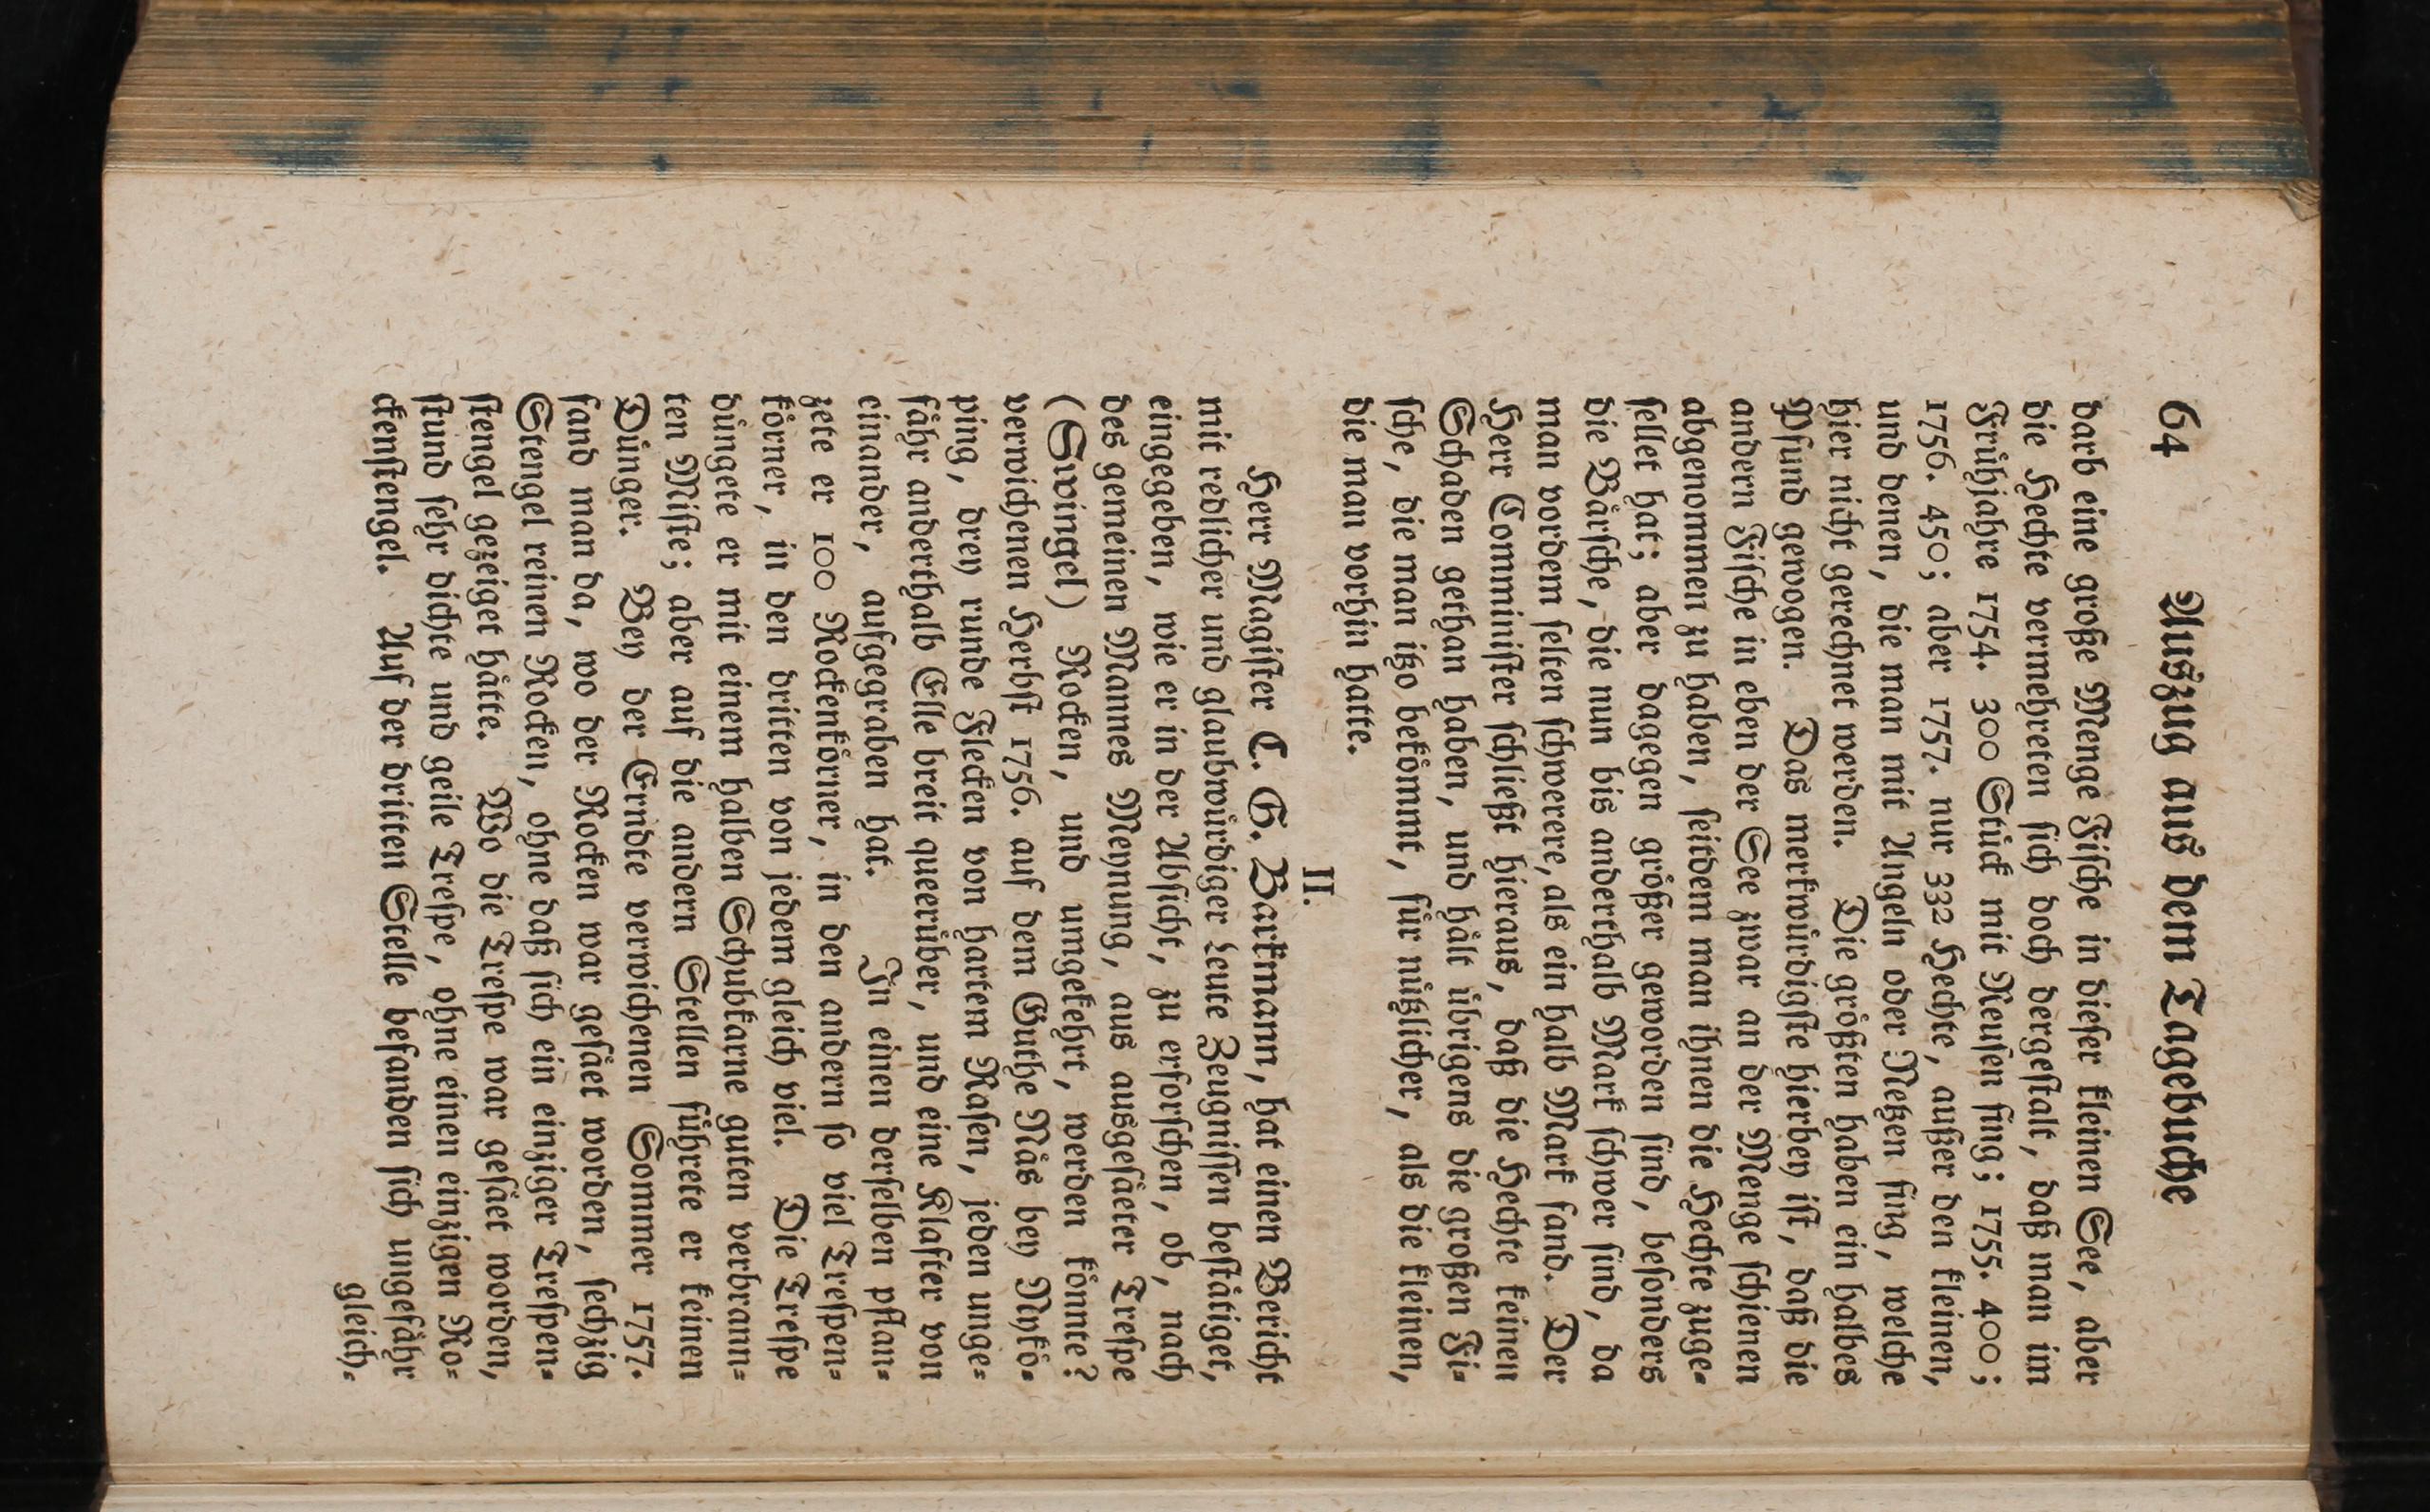 64 Auszug aus dem Tagebuche
darb eine große Menge Fische in dieser kleinen See, aber
die Hechte vermehreten sich doch dergestalt, daß man im
Frühjahre 1754. 300 Stück mit Reusen fing; 1755. 400;
1756. 450; aber 1757. nur 332 Hechte, außer den kleinen,
und denen, die man mit Angeln oder Netzen fing, welche
hier nicht gerechnet werden. Die größten haben ein halbes
Pfund gewogen. Das merkwürdigste hierbey ist, daß die
andern Fische in eben der See zwar an der Menge schienen
abgenommen zu haben, seitdem man ihnen die Hechte zuge-
sellet hat; aber dagegen größer geworden sind, besonders
die Bärsche, die nun bis anderthalb Mark schwer sind, da
man vordem selten schwerere, als ein halb Mark fand. Der
Herr Comminister schließt hieraus, daß die Hechte keinen
Schaden gethan haben, und hält übrigens die großen Fi-
sche, die man itzo bekömmt, für nützlicher, als die kleinen,
die man vorhin hatte.
II.
Herr Magister C. G. Bartmann, hat einen Bericht
mit redlicher und glaubwürdiger Leute Zeugnissen bestätiget,
eingegeben, wie er in der Absicht, zu erforschen, ob, nach
des gemeinen Mannes Meynung, aus ausgesäeter Trespe
(Swingel) Rocken, und umgekehrt, werden könnte?
verwichenen Herbst 1756. auf dem Guthe Näs bey Nykö-
ping, drey runde Flecken von hartem Rasen, jeden unge-
fähr anderthalb Elle breit queerüber, und eine Klafter von
einander, aufgegraben hat. In einen derselben pflan-
zete er 100 Rockenkörner, in den andern so viel Trespen-
körner, in den dritten von jedem gleich viel. Die Trespe
düngete er mit einem halben Schubkarne guten verbrann-
ten Miste; aber auf die andern Stellen führete er keinen
Dünger. Bey der Erndte verwichenen Sommer 1757.
fand man da, wo der Rocken war gesäet worden, sechzig
Stengel reinen Rocken, ohne daß sich ein einziger Trespen-
stengel gezeiget hätte. Wo die Trespe war gesäet worden,
stund sehr dichte und geile Trespe, ohne einen einzigen Ro-
ckenstengel. Auf der dritten Stelle befanden sich ungefähr
gleich-